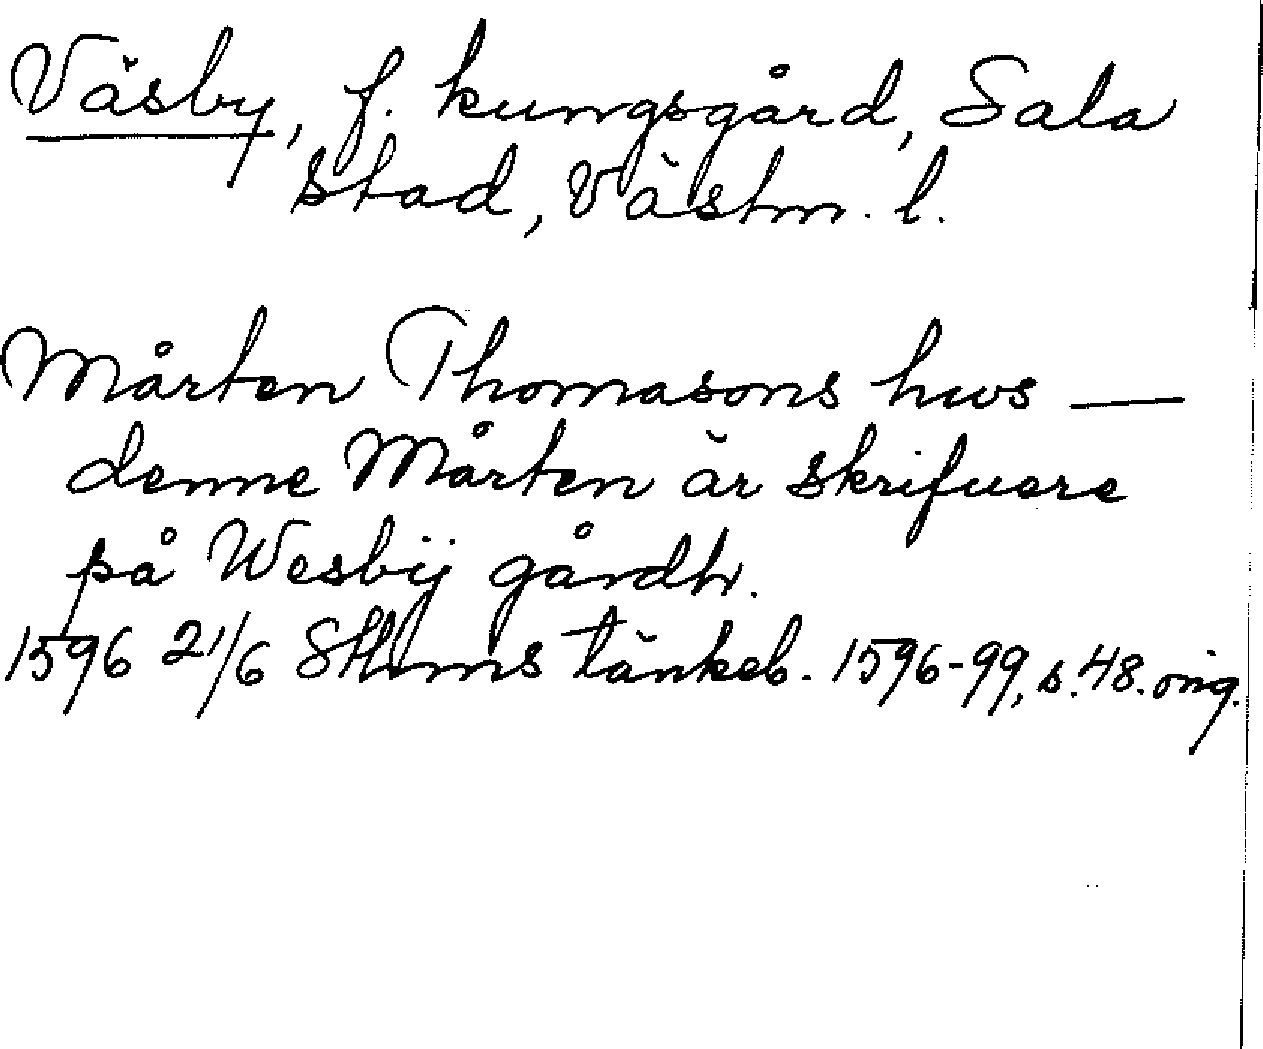 Väsby, f. kungsgård, Sala
stad, Västm. l.
Mårten Thomasons hws —
denne Mårten är skrifuere
på Wesbij gårdh.
1596 21/6 Sthms tänkeb. 1596-99, s. 48. orig.